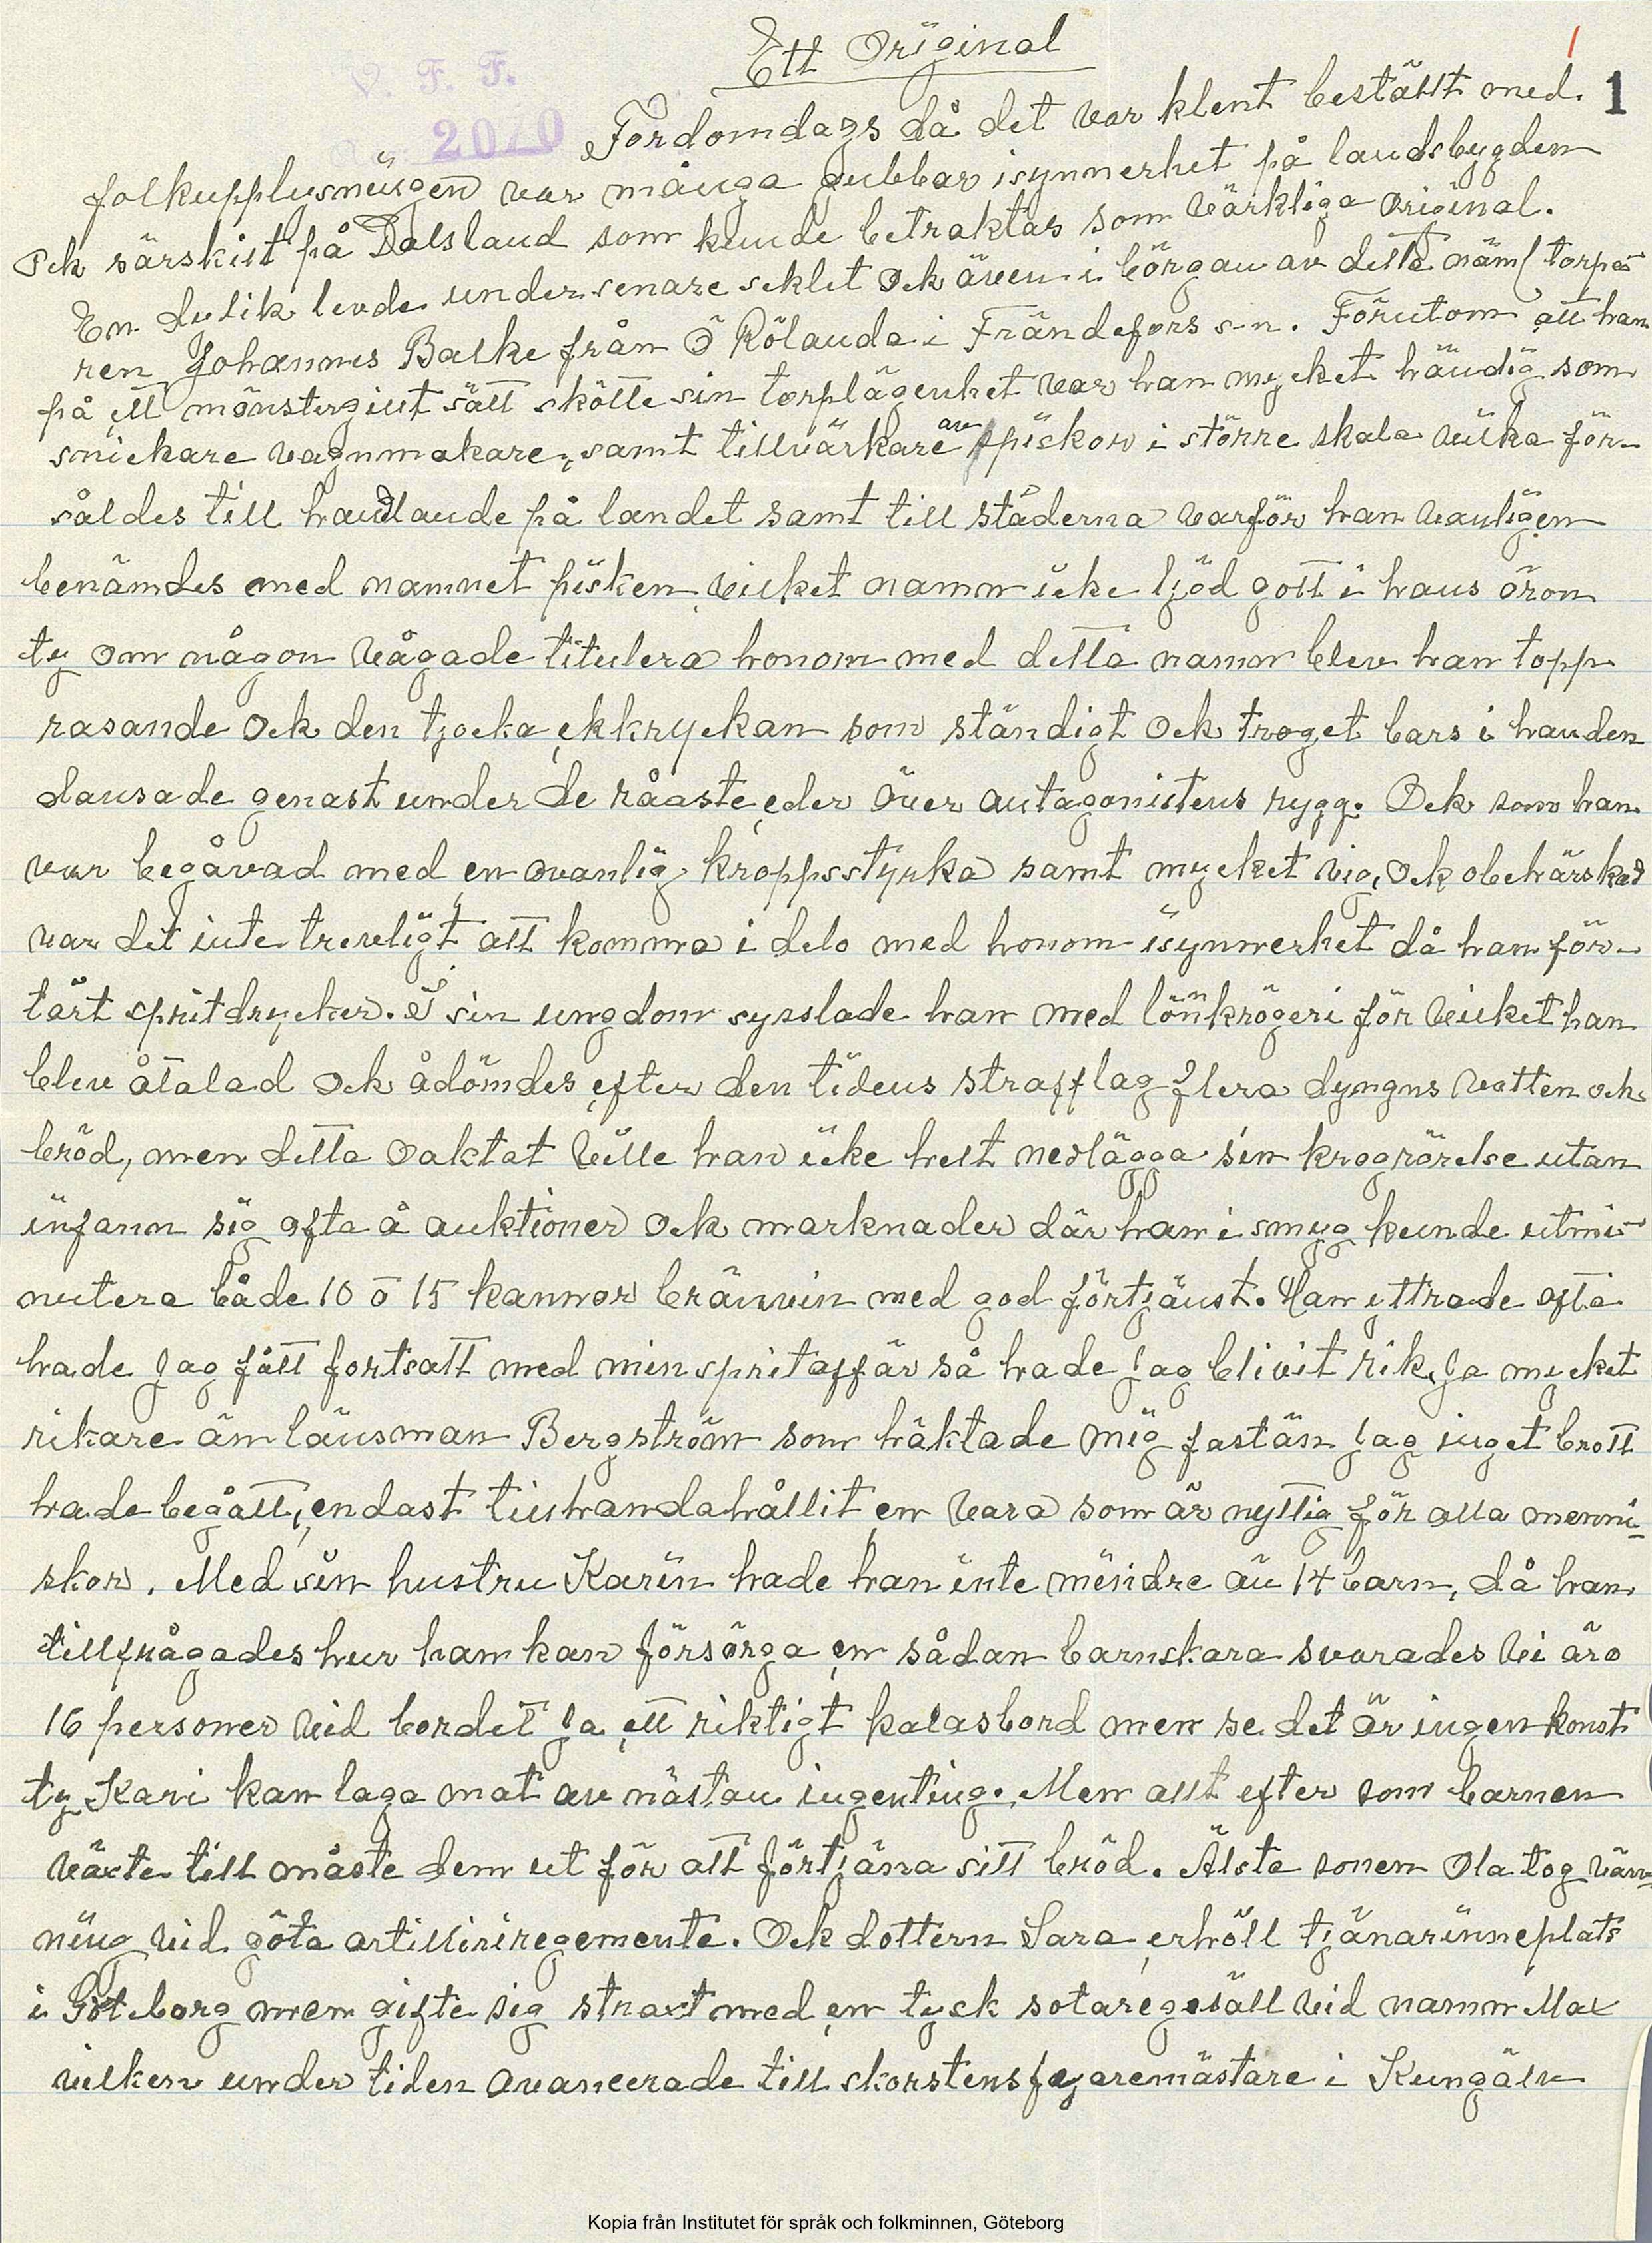 Ett Original
1
V. F. F.
2070
Fordomdags då det var klent beställt med
folkupplysningen var många gubbar isynnerhet på landsbygden
Ock särskilt på Dalsland som kunde betraktas som värkliga Original.
En dylik levde under senare seklet Ock även i börgan av detta näml torpa-
ren Johannes Balke från Ö Rölanda i Frändefors s-n. Förutom att han
på ett mönstergiut sätt skötte sin torplägenhet var han mycket händig som
snickare vagnmakare, samt tillvärkare av piskor i större skala vilka för-
såldes till handlande på landet samt till städerna varför han vanligen
benämdes med namnet pisken, vilket namn icke ljöd gott i hans öron
ty om någon vågade titulera honom med detta namn blev han topp
rasande Ock den tjocka ekkryckan som ständigt Ock troget bars i handen
dansade genast under de råaste eder över antagonistens rygg. Ock som han
var begåvad med en ovanlig kroppsstyrka samt mycket vig, Ock obehärskad
var det inte trevligt att komma i delo med honom isynnerhet då han för-
tärt spritdrycker. I sin ungdom sysslade han med lönnkrögeri för vilket han
blev åtalad Ock ådömdes efter den tidens strafflag flera dyngns vatten och
bröd, men detta Oaktat ville han icke helt nedlägga sin krogrörelse utan
infann sig ofta å auktioner Ock marknader där han i smyg kunde utmi-
nutera både 10 o 15 kannor brännvin med god förtjänst. Han yttrade ofta
hade Jag fått fortsatt med min spritaffär så hade Jag blivit rik, Ja mycket
rikare än länsman Bergström som häktade mig fastän Jag inget brott
hade begått, endast tillhandahållit en vara som är nyttig för alla menni-
skor. Med sin hustru Karin hade han inte mindre än 14 barn, då han
tillfrågades hur han kan försörga en sådan barnskara svarades Vi äro
16 personer vid bordet Ja ett riktigt kalasbord men se det är ingen konst
ty Kari kan laga mat av nästan ingenting. Men allt efter som barnen
växte till måste dem ut för att förtjäna sitt bröd. Älsta sonen Ola tog värv-
ning vid göta artilliriregemente. Ock dottern Sara erhöll tjänarinneplats
i Göteborg men gifte sig straxt med en tysk sotaregesäll vid namn Max
vilken under tiden avancerade till skorstensfejaremästare i Kungälv
Kopia från Institutet för språk och folkminnen, Göteborg